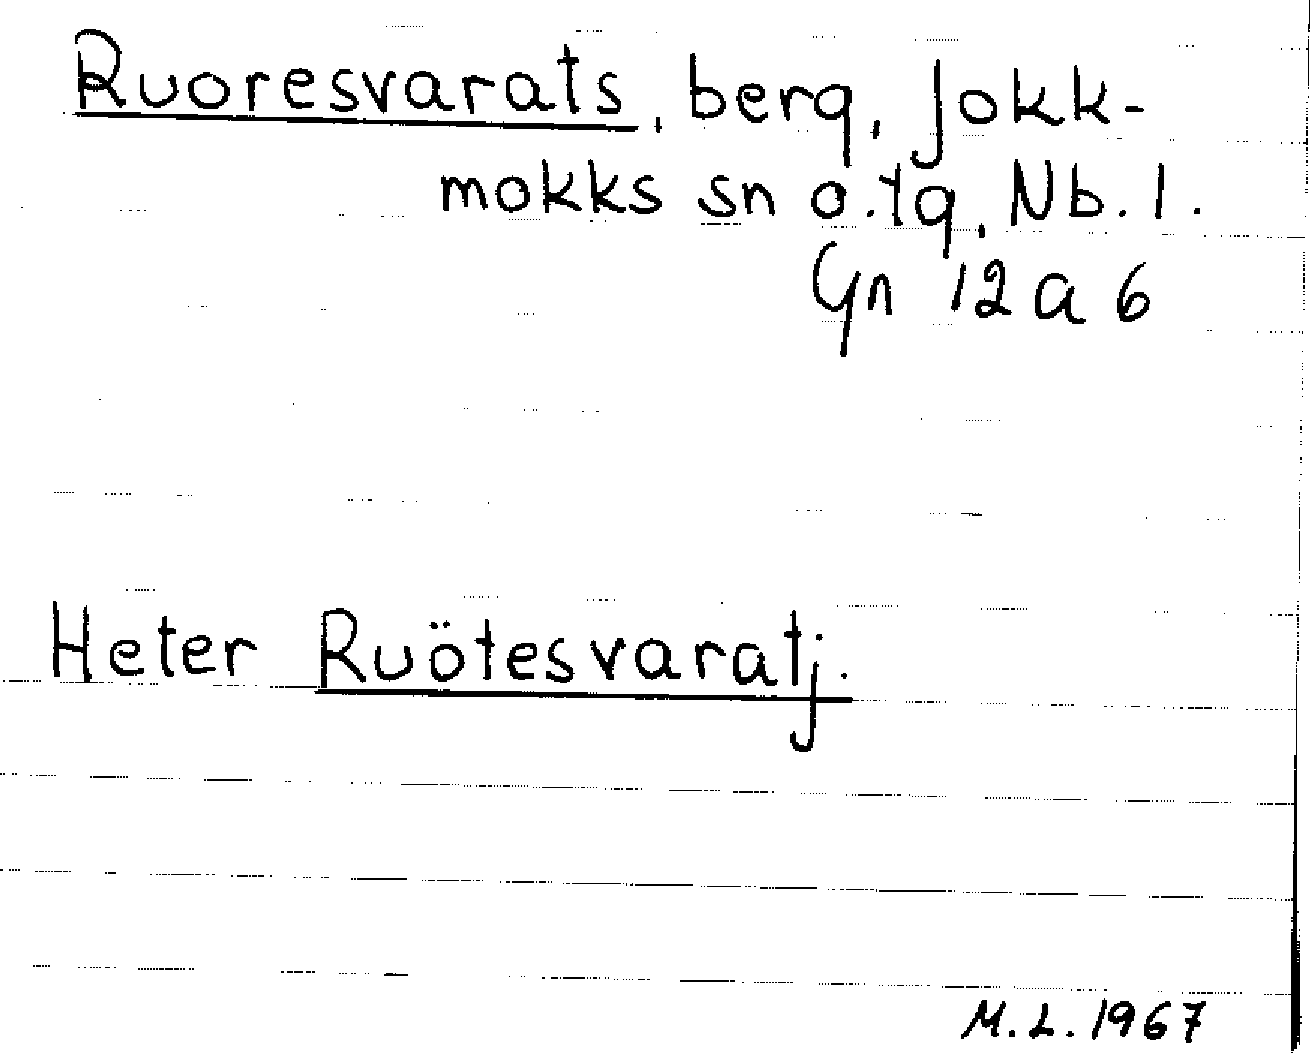 Ruoresvarats, berg, Jokk-
mokks sn o. tg, Nb. l.
Gn 12 a 6
Heter Ruötesvaratj.
M. L. 1967